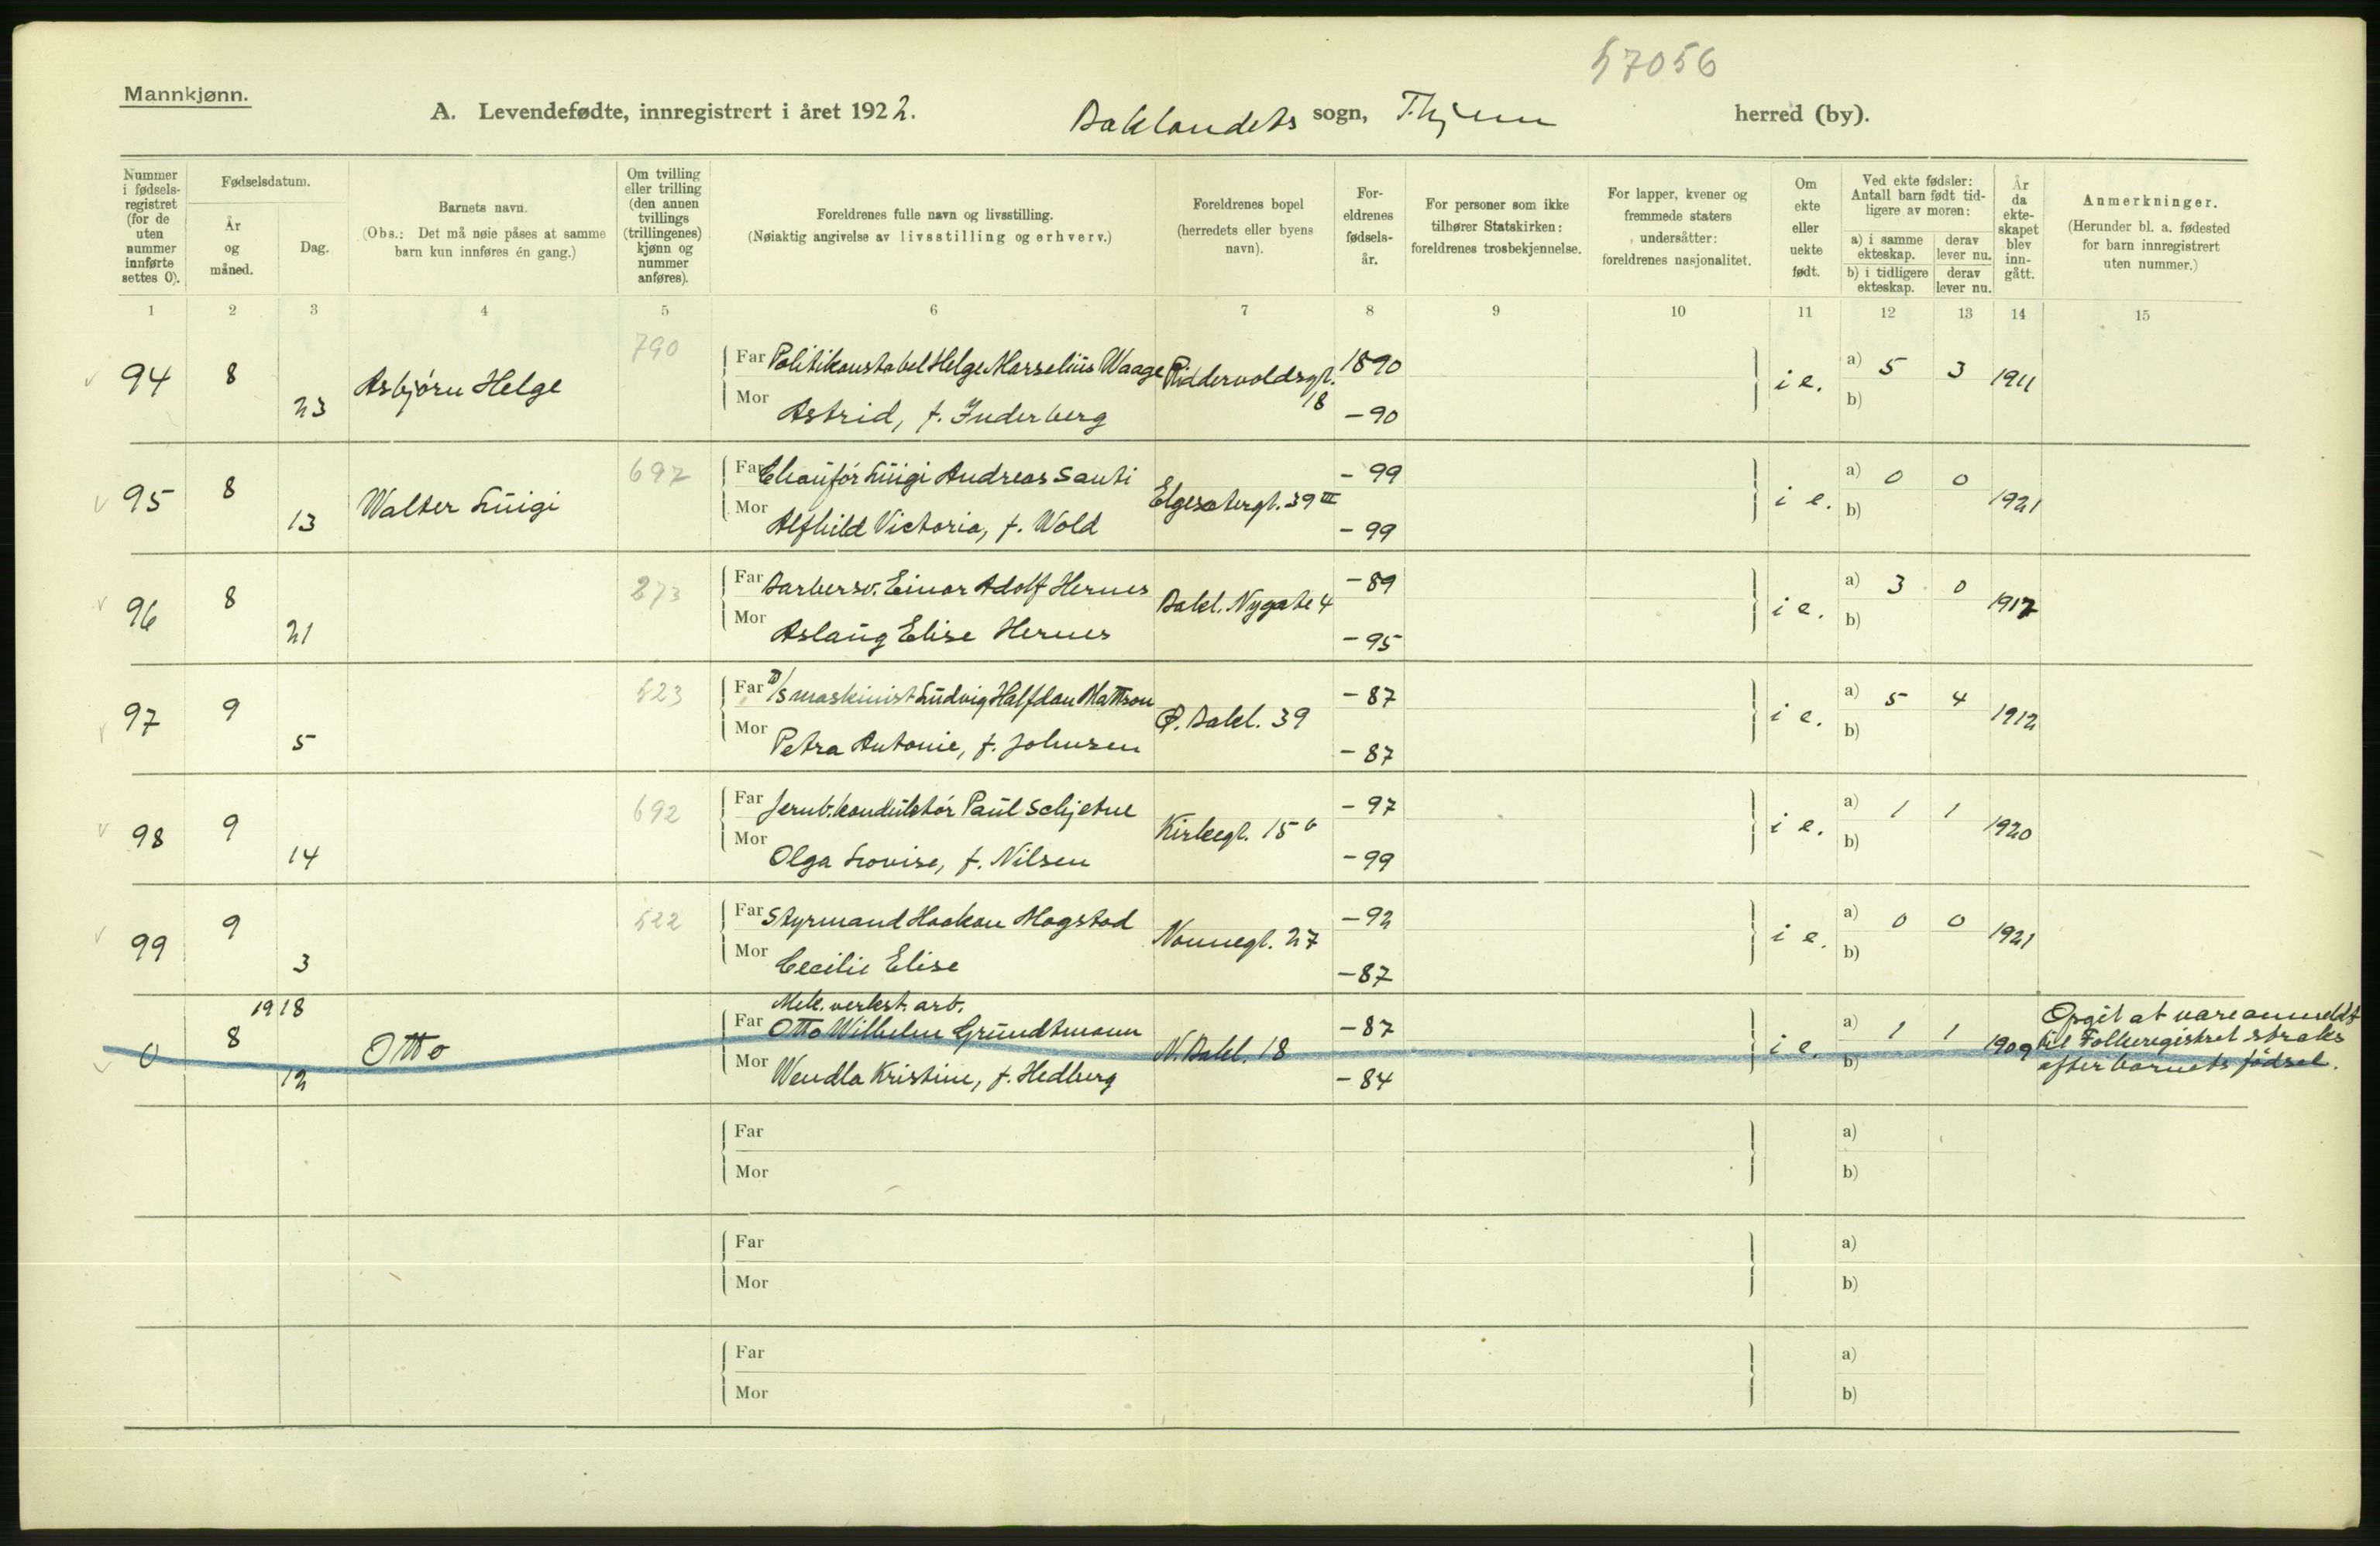 57056
Mannkjønn.
A. Levendefødte, innregistrert i året 1922. Baklandets sogn, Thjem herred (by).
Nummer i fødsels-registret (for de uten nummer innførte settes 0).
Fødselsdatum.
År og måned.
Dag.
Barnets navn.
(Obs.: Det må nøie påses at samme barn kun innføres én gang.)
Om tvilling eller trilling (den annen tvillings (trillingenes) kjønn og nummer anføres).
Foreldrenes fulle navn og livsstilling.
(Nøiaktig angivelse av livsstilling og erhverv.)
Foreldrenes bopel (herredets eller byens navn).
For-eldrenes fødsels-år.
For personer som ikke tilhører Statskirken: foreldrenes trosbekjennelse.
For lapper, kvener og fremmede staters undersåtter: foreldrenes nasjonalitet.
Om ekte eller uekte født.
Ved ekte fødsler: Antall barn født tid-ligere av moren:
a) i samme ekteskap. derav lever nu.
b) i tidligere ekteskap. derav lever nu.
År da ekte-skapet blev inn-gått.
Anmerkninger.
(Herunder bl. a. fødested for barn innregistrert uten nummer.)
1 2 3 4 5 6 7 8 9 10 11 12 13 14 15
790
94 8 23 Asbjørn Helge
Far Politikonstabel Helge Marselius Waage Riddervoldsgt. 18 1890
Mor Astrid, f. Inderberg -90
i e. a) 5 3 1911
b)
697
95 8 13 Walter Luigi
Far Chaufør Luigi Andreas Santi Elgesetergt. 39 III - 99
Mor Alfhild Victoria, f. Wold - 99
i e. a) 0 0 1921
b)
273
96 8 21
Far Barbersv. Einar Adolf Hernes Bakl. Nygate 4 -89
Mor Aslaug Elise Hernes -95
i e. a) 3 0 1917
b)
523
97 9 5
Far D/s maskinist Ludvig Halfdan Mattson Ø. Bakl. 39 -87
Mor Petra Antonie, f. Johnsen -87
i e. a) 5 4 1912
b)
692
98 9 14
Far Jernb. konduktør Paul Schjetne Kirkegt. 15 b -97
Mor Olga Lovise, f. Nilsen -99
i e. a) 1 1 1920
b)
522
99 9 3
Far Styrmand Haakon Mogstad Nonnegt. 27 -92
Mor Cecilie Elise -87
i e. a) 0 0 1921
b)
1918
0 8 12 Otto
Mek. verkst. arb.
Far Otto Wilhelm Grundtmann N. Bakl. 18 -87
Mor Wendla Kristine, f. Hedberg -84
i e. a) 1 1 1909
b)
Opgit at være anmeldt
til Folkeregistret straks
efter barnets fødsel.
Far a)
Mor b)
Far a)
Mor b)
Far a)
Mor b)